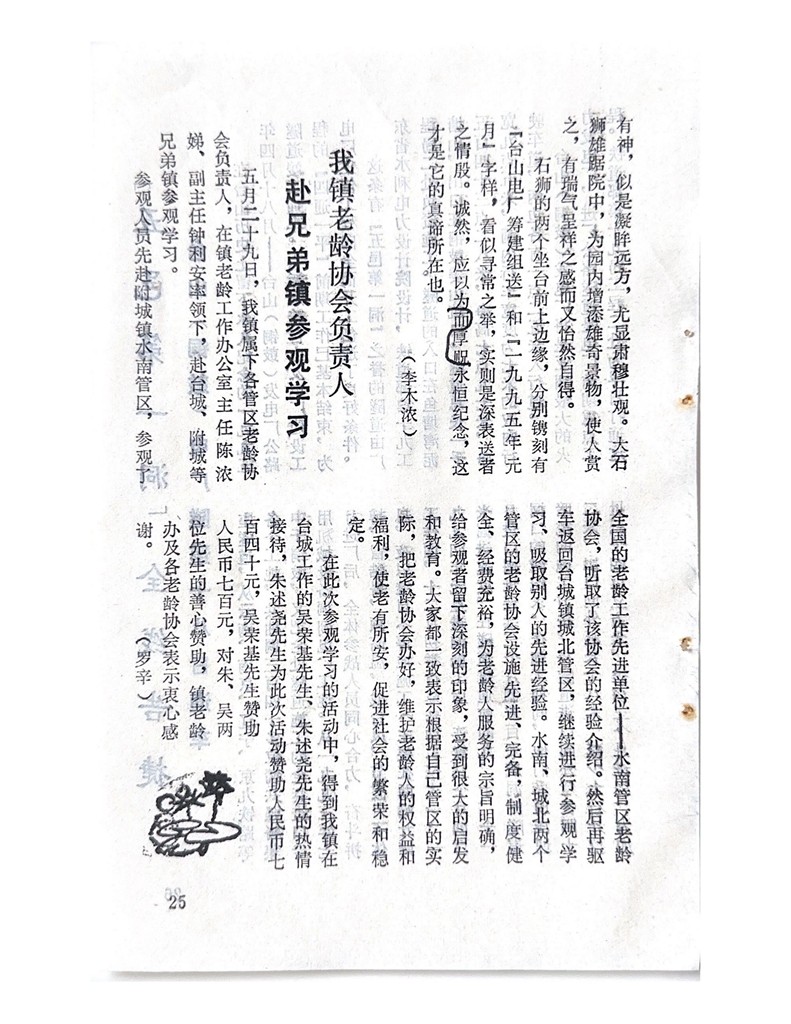 有神，似是凝眸远方，尤显肃穆壮观。大石
狮雄踞院中，为园内增添雄奇景物，使人赏
之，有瑞气呈祥之感而又怡然自得。
石狮的两个坐台前上边缘，分别镌刻有
“台山电厂筹建组送”和“一九九五年元
月”字样，看似寻常之举，实则是深表送者
之情殷。诚然，应以为而厚贶永恒纪念，这
才是它的真谛所在也。
（李木浓）
我镇老龄协会负责人
赴兄弟镇参观学习
五月二十九日，我镇属下各管区老龄协
会负责人，在镇老龄工作办公室主任陈浓
娣、副主任钟利安率领下，赴台城、附城等
兄弟镇参观学习。
参观人员先赴附城镇水南管区，参观了
全国的老龄工作先进单位——水南管区老龄
协会，听取了该协会的经验介绍。然后再驱
车返回台城镇城北管区，继续进行参观学
习、吸取别人的先进经验。水南、城北两个
管区的老龄协会设施先进、完备，制度健
全、经费充裕，为老龄人服务的宗旨明确，
给参观者留下深刻的印象，受到很大的启发
和教育。大家都一致表示根据自己管区的实
际，把老龄协会办好，维护老龄人的权益和
福利，使老有所安，促进社会的繁荣和稳
定。
在此次参观学习的活动中，得到我镇在
台城工作的吴荣基先生、朱述尧先生的热情
接待，朱述尧先生为此次活动赞助人民币七
百四十元，吴荣基先生赞助
人民币七百元，对朱、吴两
位先生的善心赞助，镇老龄
办及各老龄协会表示衷心感
谢。
（罗辛）
25